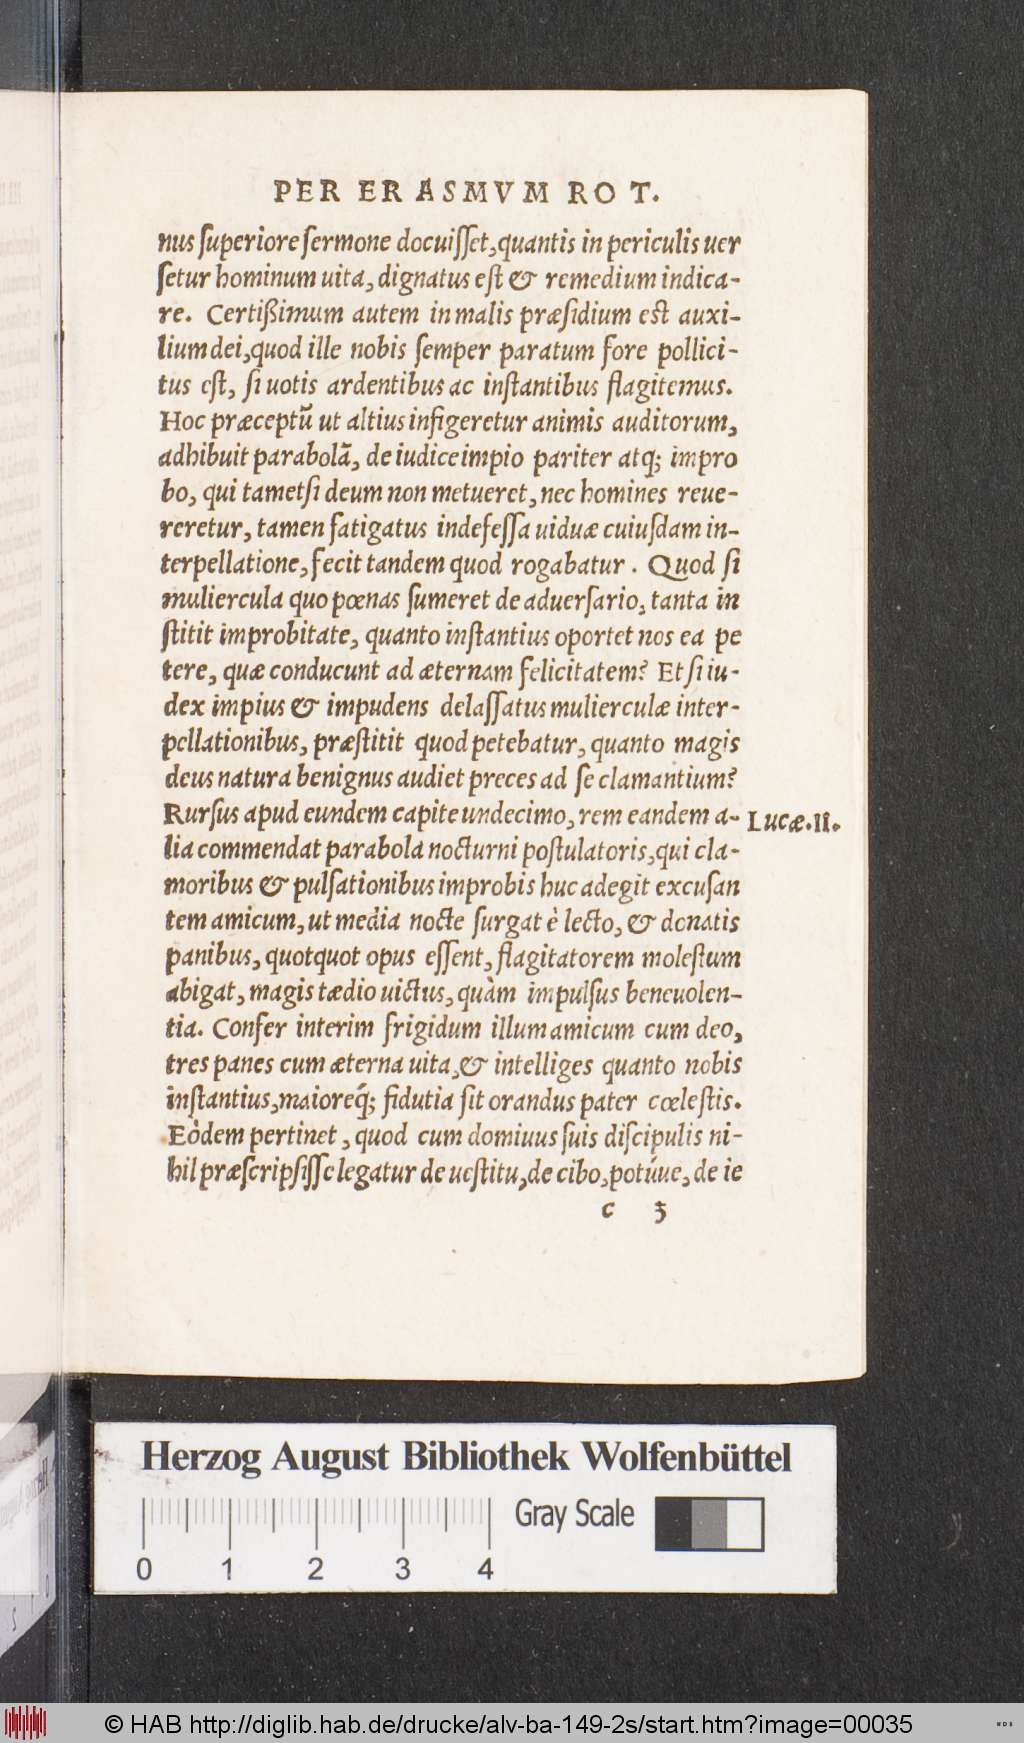 PER ERASMVM ROT.
nus ſuperiore ſermone docuiſſet, quantis in periculis uer
ſetur hominum uita, dignatus eſt & remedium indica-
re. Certißimum autem in malis præſidium eſt auxi-
lium dei, quod ille nobis ſemper paratum fore pollici-
tus eſt, ſi uotis ardentibus ac inſtantibus flagitemus.
Hoc præceptũ ut altius infigeretur animis auditorum,
adhibuit parabolã, de iudice impio pariter atq; impro
bo, qui tametſi deum non metueret, nec homines reue-
reretur, tamen fatigatus indefeſſa uiduæ cuiuſdam in-
terpellatione, fecit tandem quod rogabatur. Quod ſi
muliercula quo pœnas ſumeret de aduerſario, tanta in
ſtitit improbitate, quanto inſtantius oportet nos ea pe
tere, quæ conducunt ad æternam felicitatem? Et ſi iu-
dex impius & impudens delaſſatus mulierculæ inter-
pellationibus, præſtitit quod petebatur, quanto magis
deus natura benignus audiet preces ad ſe clamantium?
Rurſus apud eundem capite undecimo, rem eandem a-
Lucæ.II.
lia commendat parabola nocturni poſtulatoris, qui cla-
moribus & pulſationibus improbis huc adegit excuſan
tem amicum, ut media nocte ſurgat è lecto, & donatis
panibus, quotquot opus eſſent, flagitatorem moleſtum
abigat, magis tædio uictus, quàm impulſus beneuolen-
tia. Confer interim frigidum illum amicum cum deo,
tres panes cum æterna uita, & intelliges quanto nobis
inſtantius, maioreq́; fidutia ſit orandus pater cœleſtis.
Eòdem pertinet, quod cum domiuus ſuis diſcipulis ni-
hil præſcripſiſſe legatur de ueſtitu, de cibo, potúue, de ie
c 3
Herzog August Bibliothek Wolfenbüttel
Gray Scale
0 1 2 3 4
© HAB http://diglib.hab.de/drucke/alv-ba-149-2s/start.htm?image=00035